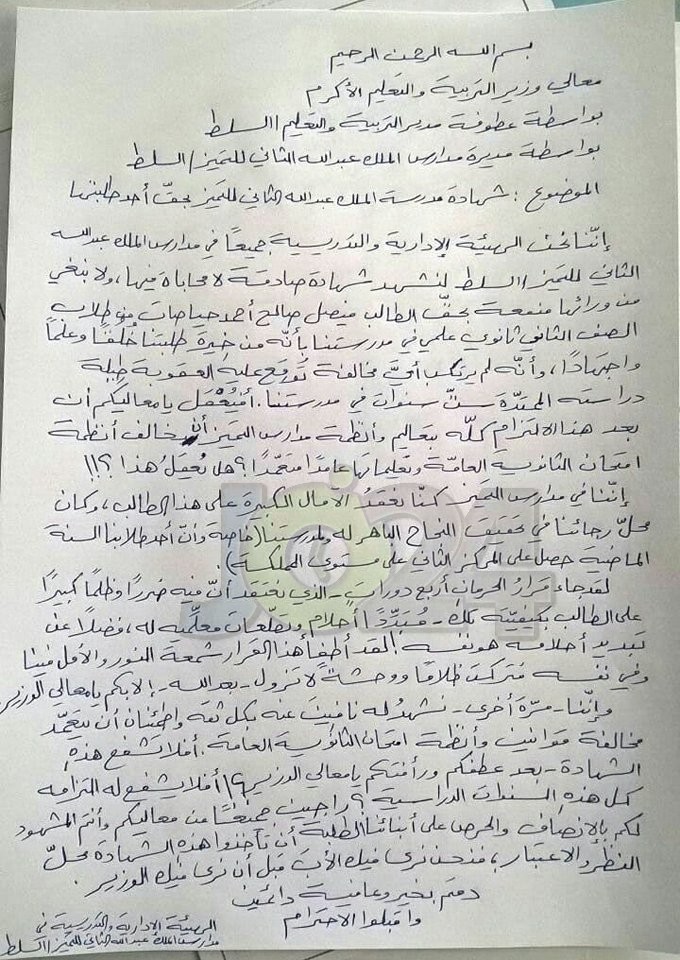 بسم الله الرحمن الرحيم
معالي وزير التربية والتعليم الأكرم
بواسطة عطوفة مدير التربية والتعليم / السلط
بواسطة مديرة مدارس الملك عبدالله الثاني للتميز / السلط
الموضوع : شهادة مدرسة الملك عبدالله الثاني للتميز بحقّ أحد طلبتها
إنّنا نحن الهيئة الإدارية والتدريسية جميعًا في مدارس الملك عبدالله
الثاني للتميز / السلط لنشهد شهادة صادقة لا محاباة فيها، ولا نبغي
من ورائها منفعة بحقّ الطالب فيصل صالح أحمد حياصات من طلاب
الصف الثاني ثانوي علمي في مدرستنا بأنّه من خيرة طلبتنا خُلُقًا وعلمًا
واجتهادًا، وأنّه لم يرتكب أيّ مخالفة تُوقع عليه العقوبة طيلة
دراسته الممتدّة ستّ سنوات في مدرستنا. أفيُعْقَل يا معاليكم أن
بعد هذا الالتزام كلّه بتعاليم وأنظمة مدارس التميز أن يخالف أنظمة
امتحان الثانوية العامّة وتعليماتها عامدًا متعمّدًا؟ هل يُعقل هذا ؟!!
إنّنا في مدارس التميز كنّا نعقد الآمال الكبيرة على هذا الطالب، وكان
محلّ رجائنا في تحقيق النجاح الباهر له ولمدرستنا (خاصة وأنّ أحد طلابنا السنة
الماضية حصل على المركز الثاني على مستوى المملكة).
لقد جاء قرار الحرمان أربع دورات - الذي نعتقد أنّ فيه ضررًا وظلمًا كبيرًا
على الطالب بكيفيّته تلك - مُبَدِّدًا أحلام وتطلّعات معلّميه له، فضلًا عن
تبديد أحلامه هو نفسه! لقد أطفأ هذا القرار شمعة النور والأمل فينا
وفي نفسه فتركت ظلامًا ووحشة لا تزول - بعد الله - إلا بكم يا معالي الوزير
وإنّنا - مرّة أخرى - نشهد له نافين عنه بكل ثقة واطمئنان أن يتعمّد
مخالفة قوانين وأنظمة امتحان الثانوية العامة. أفلا تشفع هذه
الشهادة - بعد عطفكم ورأفتكم يا معالي الوزير ؟! أفلا تشفع له التزامه
كل هذه السنوات الدراسية ؟ راجين جميعًا من معاليكم وأنتم المشهود
لكم بالإنصاف والحرص على أبنائنا الطلبة أن تأخذوا هذه الشهادة محلّ
النظر والاعتبار، فنحن نرى فيك الأب قبل أن نرى فيك الوزير.
دمتم بخير وعافية دائمين
واقبلوا الاحترام
الهيئة الإدارية والتدريسية في
مدارس الملك عبدالله الثاني للتميز / السلط
JO24